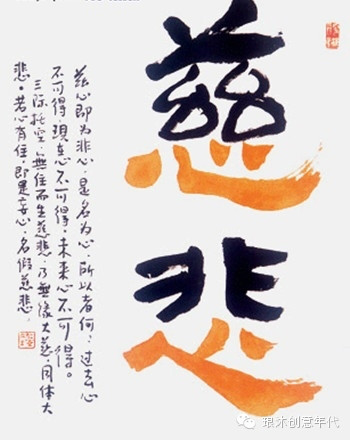 慈悲
慈心即为非心,是名为心,所以者何?过去心
不可得,現在心不可得,未来心不可得。
三际托空,無住而生慈悲,乃無缘大慈,同体大
悲。若心有住,即是妄心,名假慈悲。
木创意年代